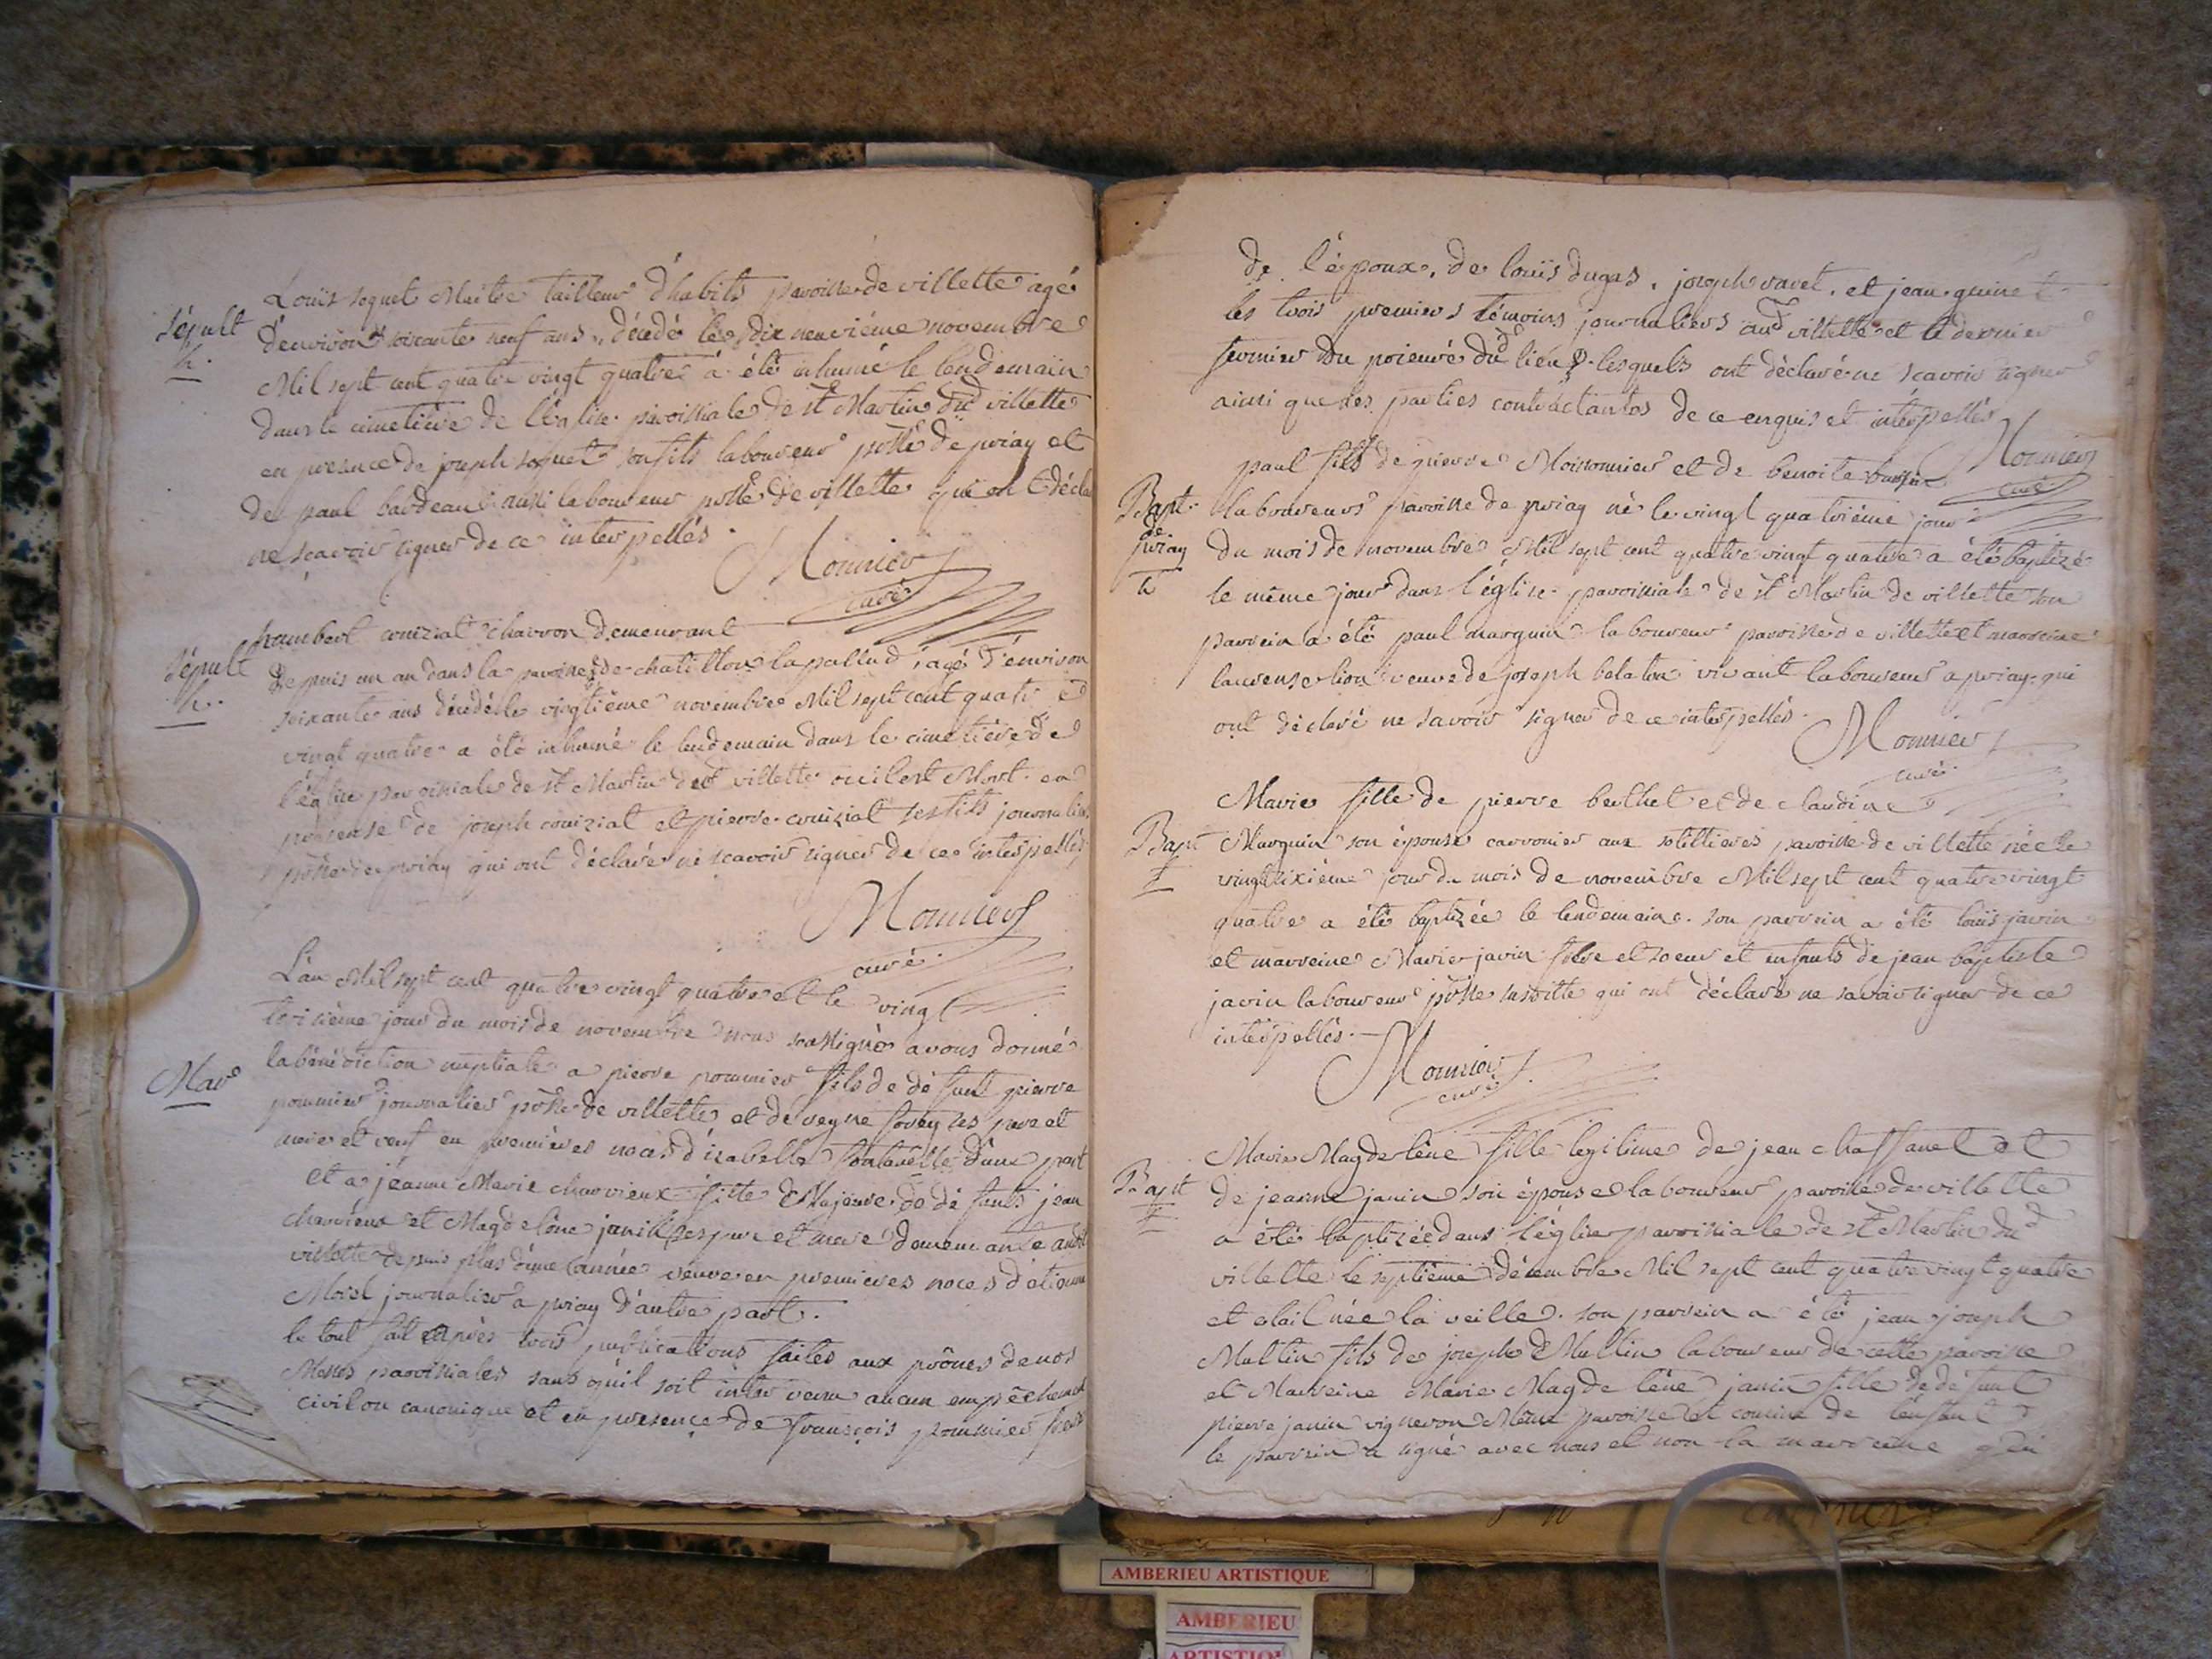 Louis soquet Maitre tailleur d'habits paroisse de villette agé
sépult
h.
d'environ soixante neuf ans, décédé le dix neuvième novembre
Mil sept cent quatre vingt quatre a été inhumé le lendemain
dans le cimetière de l'église paroissiale de st Martin dud villette
en presence de joseph soquet son fils laboureur psse de priay et
de paul baddeau aussi laboureur psse de villette qui ont décla
ne sçavoir signer de ce interpellés.
Monnier
curé
humbert couiziat charron demeurant
sépult
h.
depuis un an dans la paroisse de chatillon la pallud, agé d'environ
soixante ans décédé le vingtième novembre Mil sept cent quatre
vingt quatre a été inhumé le lendemain dans le cimetière de
l'église paroissiale de st Martin de villette ou il est Mort en
présense de joseph couiziat et pierre couiziat ses fils journaliers
psse de priay qui ont déclaré ne scavoir signer de ce interpellés
Monnier
curé.
L'an Mil sept cent quatre vingt quatre et le vingt
troisième jour du mois de novembre nous soussigné avons donné
Mar
la bénédiction nuptiale a pierre pommier fils de défunt pierre
pommier journalier psse de villette et de reyne ses pere et
mere et veuf en premieres noces d'isabelle d'une part
et a jeanne Marie charvieux fille Majeure de défunts jean
charvieux et Magdelêne janin ses pere et mere demeurante aud
villette depuis plus d'une année veuve en premieres noces d'etienne
Morel journalier a priay d'autre part.
le tout fait après trois publications faites aux prônes de nos
Messes paroissiales sans qu'il soit intervenu aucun empêchement
civil ou canonique et en presence de françois pommier frere
de l'époux, de louis dugas, joseph varet, et jean guinet
les trois premiers témoins journaliers aud villette et le dernier
fermier du prieuré dud lieu lesquels ont déclaré ne scavoir signer
ainsi que les parties contractantes de ce enquis et interpellés
Monnier
curé
paul fils de pierre Moissonnier et de benoite
Bapt.
de
priay
h
laboureurs paroisse de priay né le vingt quatrième jour
du mois de novembre Mil sept cent quatre vingt quatre a été baptizé
le même jour dans l'église paroissiale de st Martin de villette son
parrein a été paul marguin laboureur paroisse de villette et marreine
laurense lion veuve de joseph belaton vivant laboureur a priay qui
ont déclaré ne savoir signer de ce interpellés.
Monnier
curé.
Marie fille de pierre berthet et de claudine
Bapt
f
Marguin son épouse carronier aux sotillieres paroisse de villette née le
vingt sixième jour du mois de novembre Mil sept cent quatre vingt
quatre a été baptizée le lendemain. son parrein a été louis javin
et marreine Marie javin frere et soeur et enfants de jean baptiste
javin laboureur psse susditte qui ont déclaré ne savoir signer de ce
interpellés.
Monnier
curé
Marie Magdelêne fille legitime de jean chaffanet et
Bapt
f
de jeanne janin son épouse laboureur paroisse de villette
a été baptizée dans l'église paroissiale de st Martin dud
villette le septième décembre Mil sept cent quatre vingt quatre
et etait née la veille. son parrein a été jean joseph
Multin fils de joseph Multin laboureur de cette paroisse
et Marreine Marie Magdelêne janin fille de défunt
pierre janin vigneron Même paroisse et cousine de l'enfant
le parrein a signé avec nous et non la marreine qui
AMBERIEU ARTISTIQUE
AMBERIEU
ARTISTIQUE